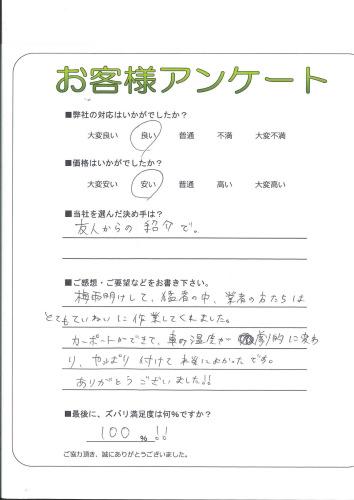 お客様アンケート
■弊社の対応はいかがでしたか?
大変良い 良い 普通 不満 大変不満
■価格はいかがでしたか?
大変安い 安い 普通 高い 大変高い
■当社を選んだ決め手は?
友人からの紹介で。
■ご感想・ご要望などをお書き下さい。
梅雨明けして、猛暑の中、業者の方たちは
とてもていねいに作業してくれました。
カーポートができて、車の温度が劇的に変わ
り、やっぱり付けて本当によかったです。
ありがとうございました!!
■最後に、ズバリ満足度は何%ですか?
100 % !!
ご協力頂き、誠にありがとうございました。